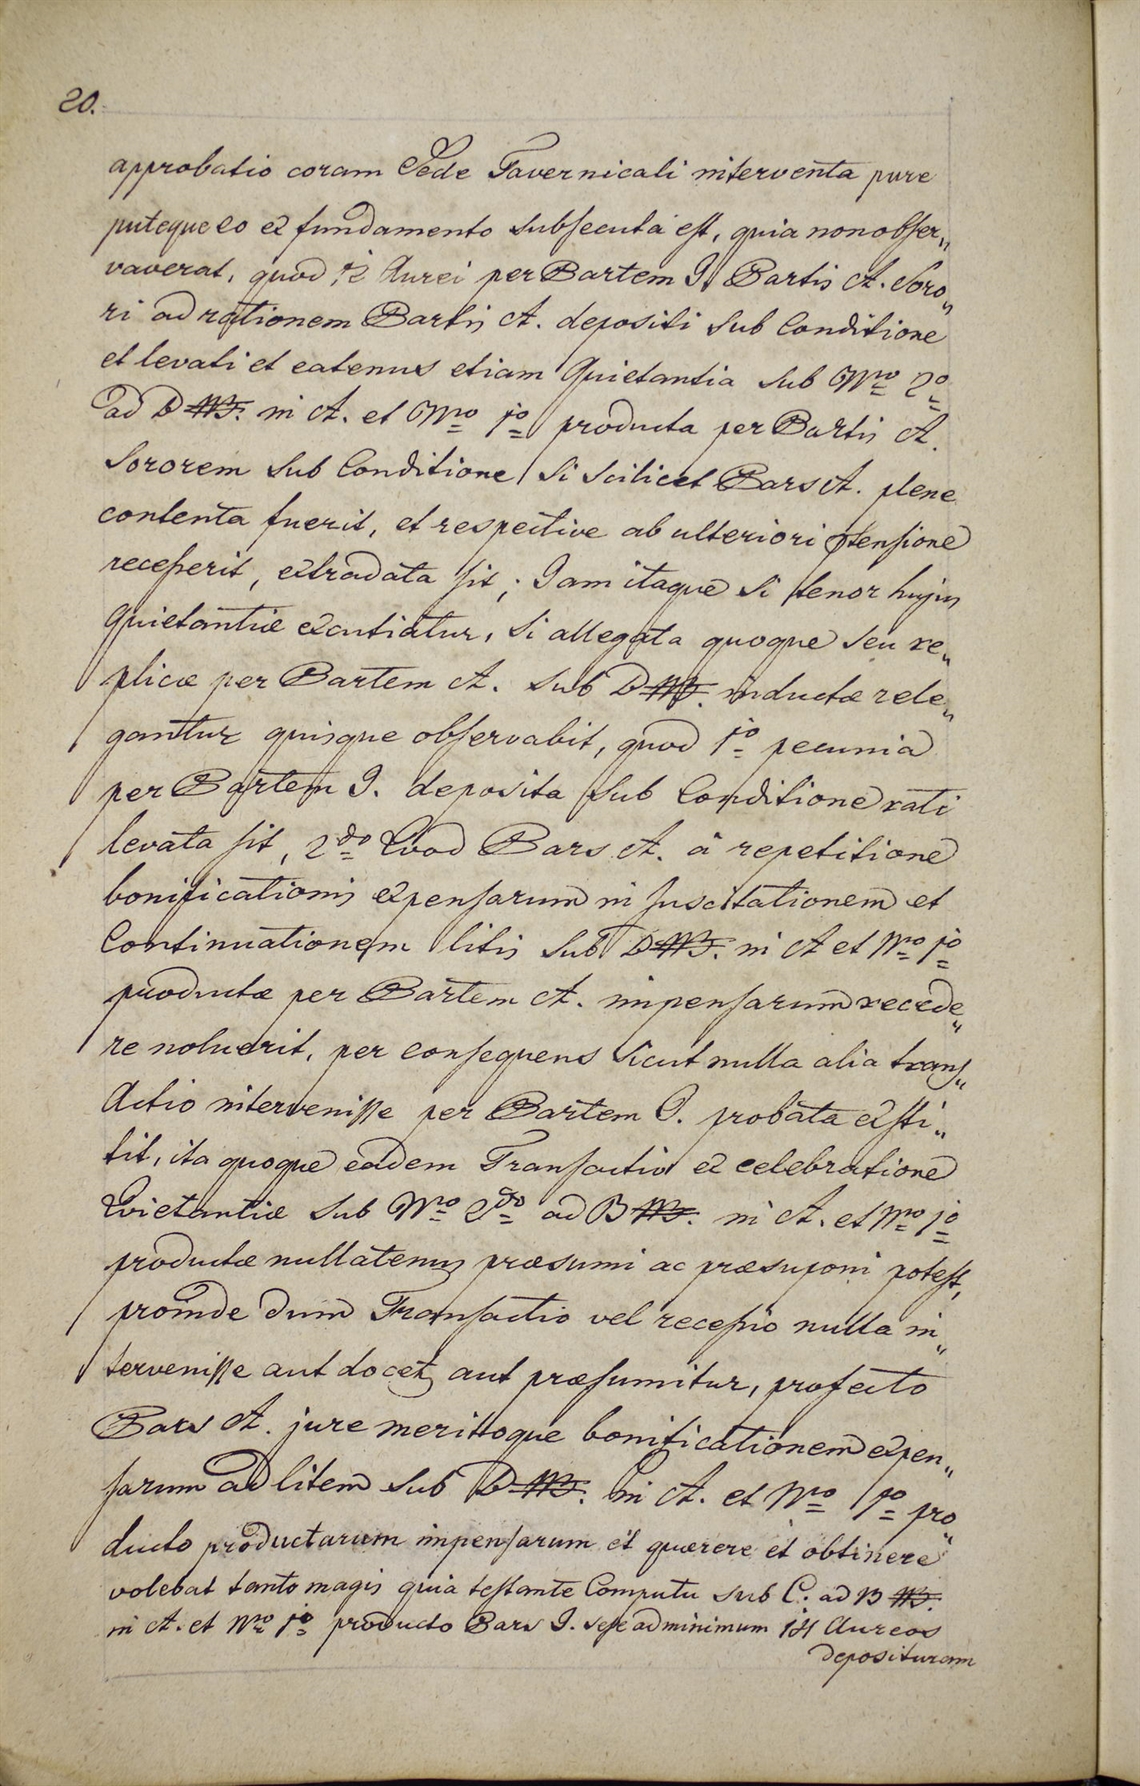 20.
approbatio coram Sede Tavernicali interventa pure
puteque eo ex fundamento subsecuta est, quia non obser„
vaverat, quod 12 Aurei per Partem I. Partis A. Soro„
ri ad rationem Partis A. depositi sub Conditione
et levati et eatenus etiam Quietantia sub Nro 2o
ad D in A. et Nro 1o producta per Partis A.
Sororem sub Conditione si scilicet Pars A. plene
contenta fuerit, et respective ab ulteriori ptensione
recesserit, extradata sit; Jam itaque si tenor hujus
Quietantiæ excutiatur, si allegata quoque seu re„
plicæ per Partem A. sub D inductæ rele„
gantur quisque observabit, quod 1o pecunia
per Partem I. deposita sub Conditione rati
levata sit, 2do Quod Pars A. à repetitione
bonificationis expensarum in suscitationem et
Continuationem litis sub D in A et Nro 1o
productæ per Partem A. impensarum recede„
re noluerit, per consequens sicut nulla alia trans„
Actio intervenisse per Partem I. probata exsti„
tit, ita quoque eadem Transactio ex celebratione
Quietantiæ sub Nro 2do ad B in A. et Nro 1o
productæ nullatenus præsumi ac præsuponi potest,
proinde dum Transactio vel recessio nulla in„
tervenisse aut docetz aut præsumitur, profecto
Pars A. jure meritoque bonificationem expen„
sarum ad litem sub D in A. et Nro 1o pro„
ducto productarum impensarum et quærere et obtinere
volebat tanto magis quia testante Computu sub C. ad B
in A. et Nro 1o producto Pars I. sese ad minimum 14 Aureos
deposituram